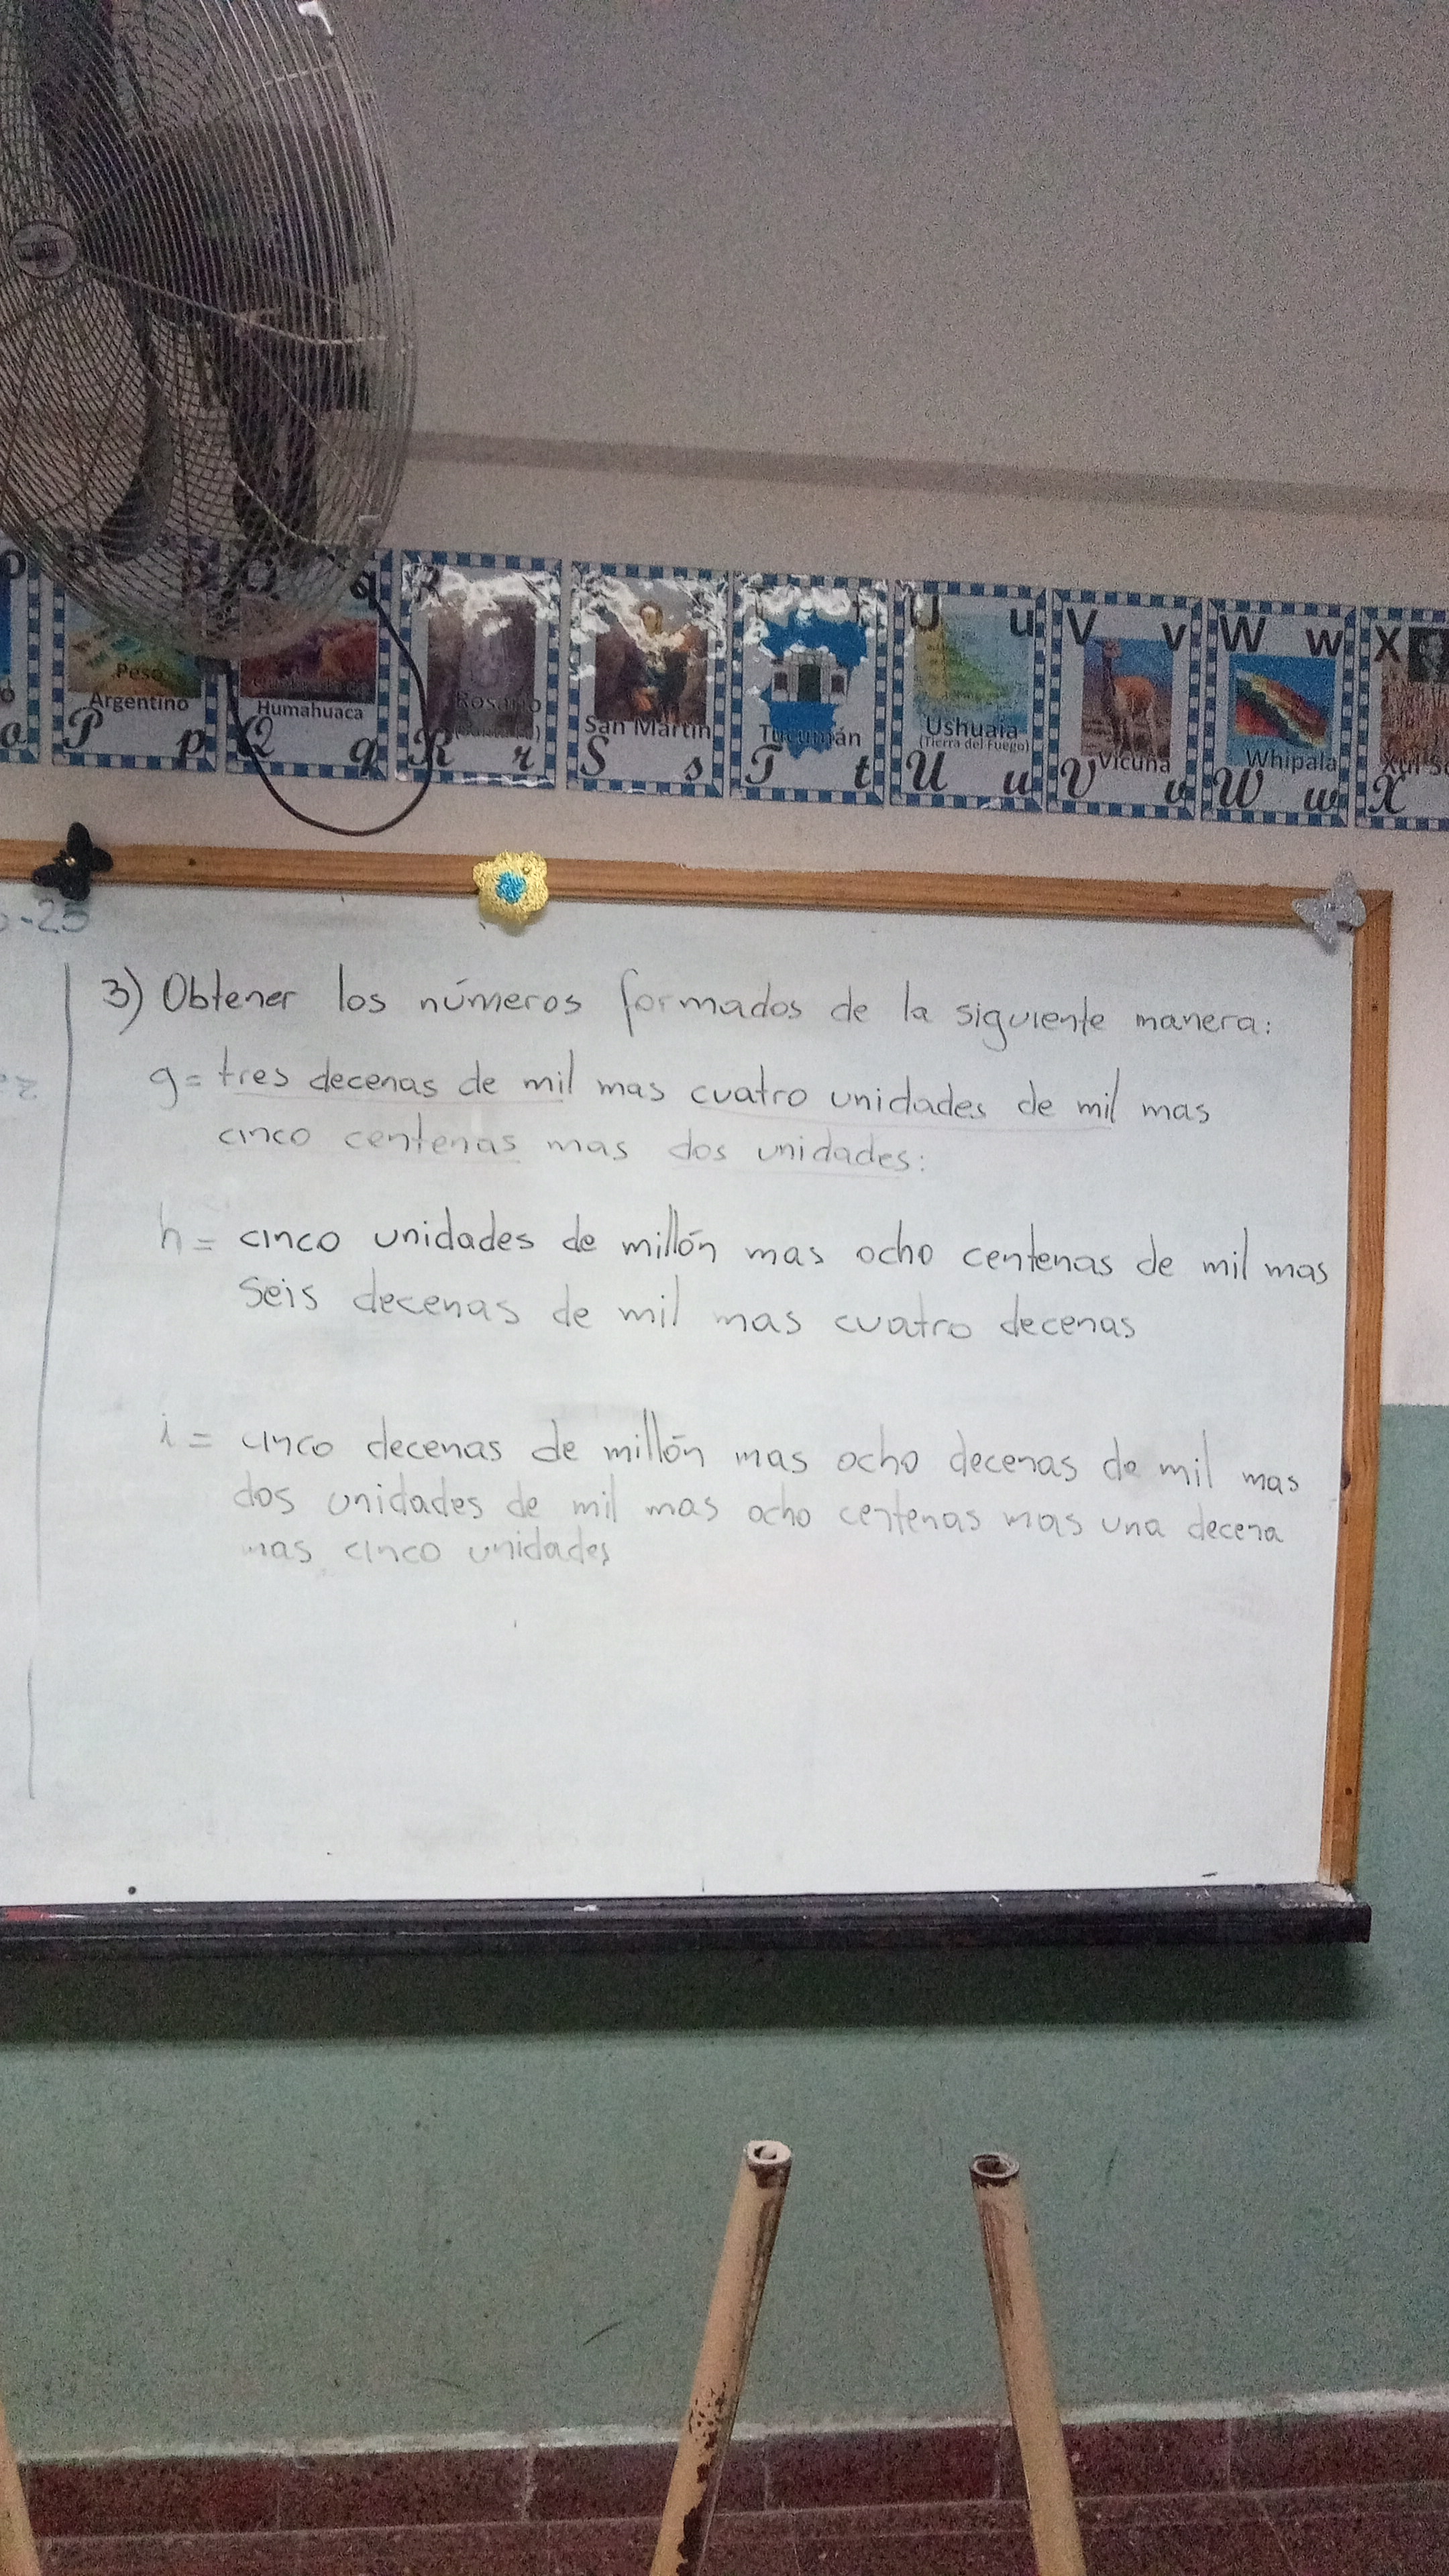 P
Peso
Argentino
P p
Q q
Humahuaca
Q q
R
Rosario
R r
San Martín
S s
Tucumán
T t
U u
Ushuaia
(Tierra del Fuego)
U u
V v
Vicuña
V v
W w
Whipala
W w
X
Xul
X
-25
3) Obtener los números formados de la siguiente manera:
g= tres decenas de mil mas cuatro unidades de mil mas
cinco centenas mas dos unidades:
h= cinco unidades de millón mas ocho centenas de mil mas
seis decenas de mil mas cuatro decenas
i= cinco decenas de millón mas ocho decenas de mil mas
dos unidades de mil mas ocho centenas mas una decena
mas cinco unidades